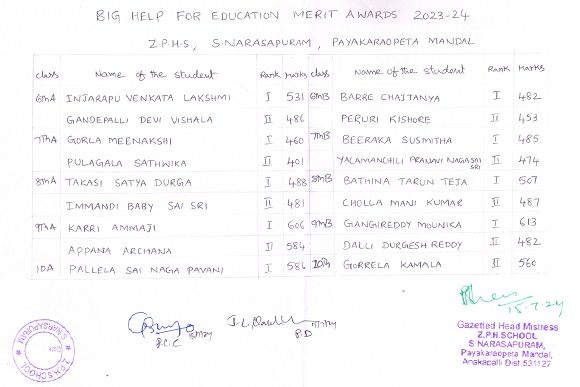 BIG HELP FOR EDUCATION MERIT AWARDS 2023-24
Z.P.H.S, S.NARASAPURAM, PAYAKARAOPETA MANDAL
class Name of the student Rank Marks class Name of the student Rank Marks
6thA INJARAPU VENKATA LAKSHMI I 531 6thB BARRE CHAITANYA I 482
GANDEPALLI DEVI VISHALA II 486 PERURI KISHORE II 453
7thA GORLA MEENAKSHI I 460 7thB BEERAKA SUSMITHA I 485
PULAGALA SATHWIKA II 401 YALAMANCHILI PRANAVI NAGA SAI SRI II 474
8thA TAKASI SATYA DURGA I 488 8thB BATHINA TARUN TEJA I 507
IMMANDI BABY SAI SRI II 481 CHOLLA MANI KUMAR II 487
9thA KARRI AMMAJI I 606 9thB GANGIREDDY MOUNIKA I 613
APPANA ARCHANA II 584 DALLI DURGESH REDDY II 482
10A PALLELA SAI NAGA PAVANI I 586 10B GORRELA KAMALA II 560
15.7.24
P.D
Gazetted Head Mistress
Z.P.H.SCHOOL
S NARASAPURAM,
Payakaraopeta Mandal,
Anakapalli Dist 531127
Z.P.H.SCHOOL
S.NARASAPURAM